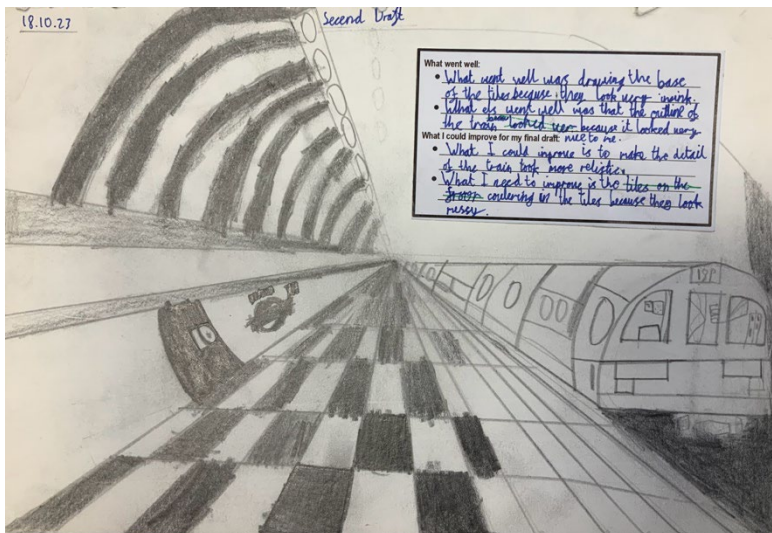 18.10.23
Second Draft
What went well:
• What went well was drawing the base
of the tiles because they look very
• What els went well was that the outline of
the train looked because it looked very
nice to me.
What I could improve for my final draft:
• What I could improve is to make the detail
of the train look more relistic.
• What I need to improve is the tiles on the
coulering in the tiles because they look
messy.